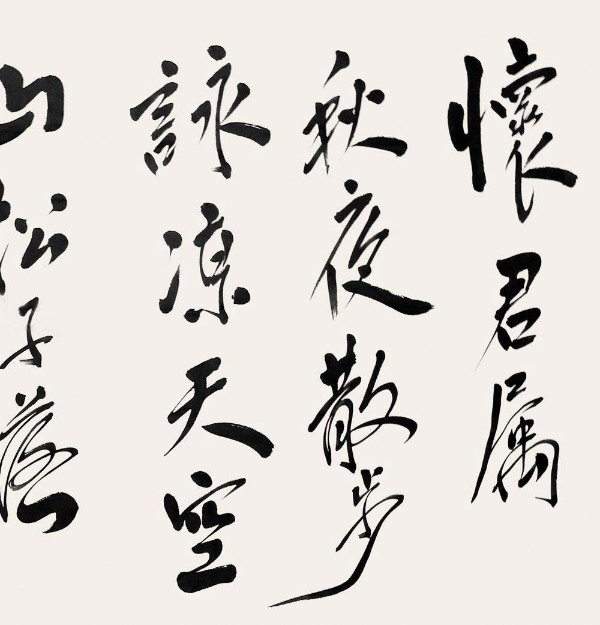 懷君属
秋夜散步
詠凉天空
山松子落